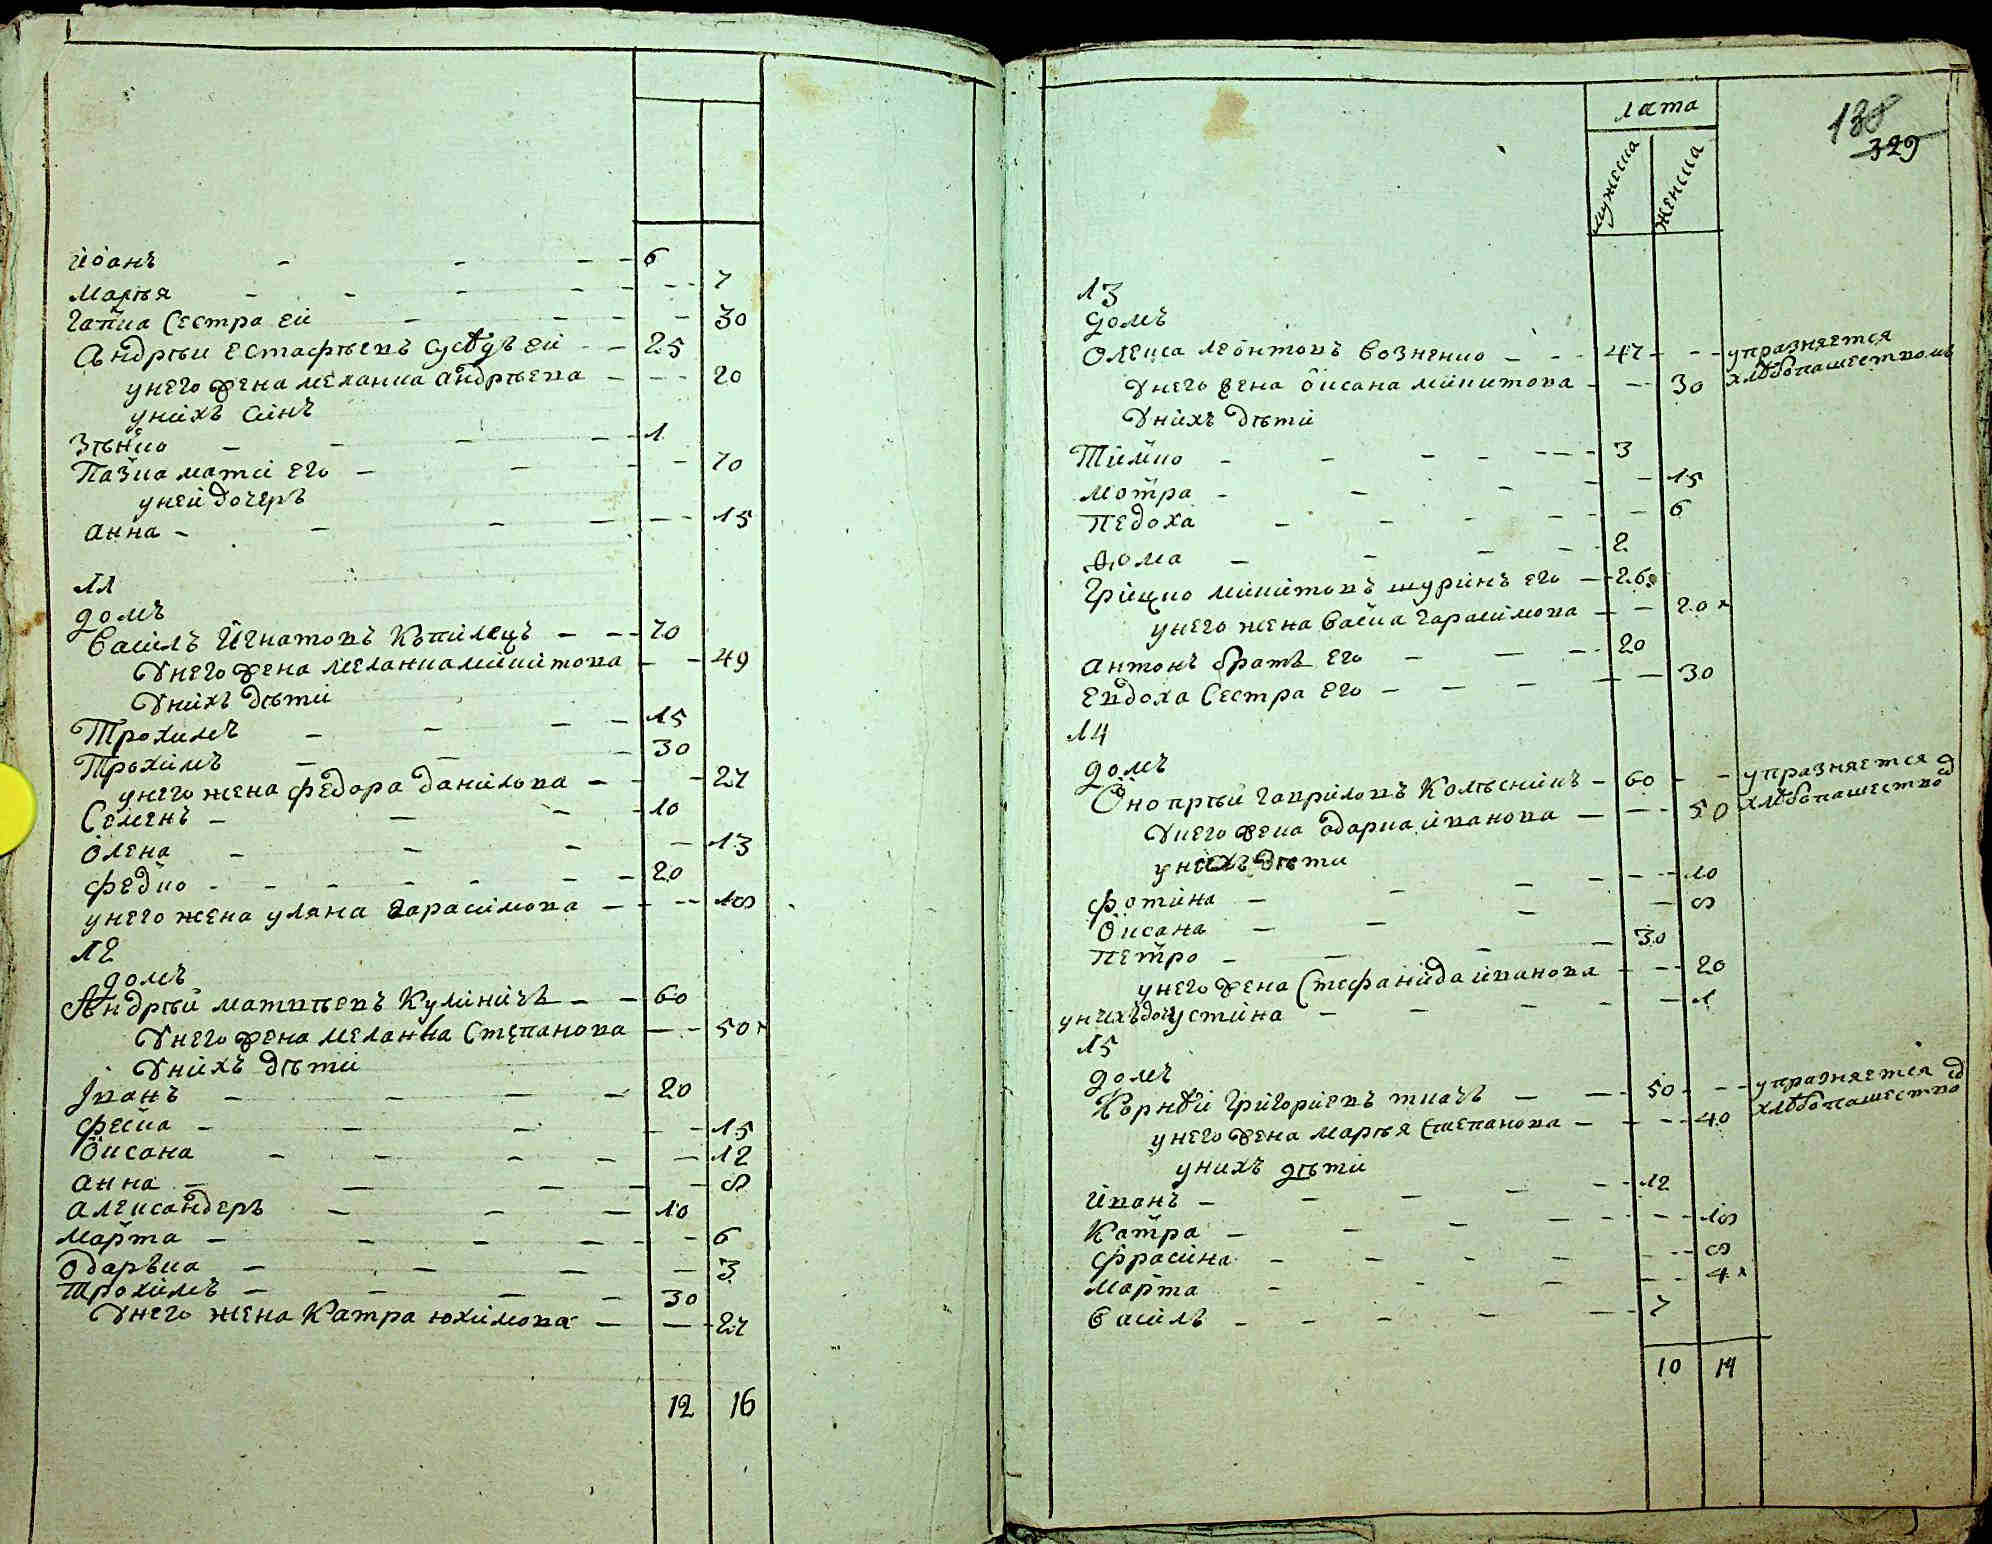 Иоанъ 6
Марѣя 7
Гапка Сестра еи 30
Андрѣи Естафѣевъ Сусѣдъ еи 25
унего жена меланка андрѣева 20
унихъ синъ
Зѣнко 1
Пазка мати его 70
уней дочеръ
анна 15
11
домъ
Василъ Йгнатовъ Къпилецъ 70
Унего жена меланка микитова 49
Унихъ дѣти
Трохимъ 15
Трохимъ 30
унего жена федора данилова 27
Семенъ 10
Олена 13
Федко 20
унего жена уляна Гарасимова 18
12
домъ
Андрѣй матвѣевъ Кулиничъ 60
Унего жена меланка Степанова 50
Унихъ дѣти
Іванъ 20
феска 15
Оксана 12
анна 8
александеръ 10
марта 6
Одарька 3
трохимъ 30
Унего жена Катра юхимова 27
12 16
лета
мужеска женска
138
329
13
домъ
Олекса леонтовъ Возненко 47 упразняется
Унего жена Оксана микитова 30 хлѣбопашествомъ
Унихъ дѣти
Тимко 3
мотра 15
Педоха 6
Ѳома 2
Грицко микитовъ шуринъ его 26
унего жена васка гарасимова 20
антонъ братъ его 20
Евдоха Сестра его 30
14
домъ
Онопрѣй гаврiловъ Колѣсникъ 60 упразняется
Унего жена одарка иванова 50 хлѣбопашество
унихъ дѣти
фотина 10
Оксана 8
Петро 30
унего жена Стефанида иванова 20
унихъ доч Устина 1
15
домъ
Корнѣй Григориевъ ткачъ 50 упразняется
унего жена марѣя Степанова 40 хлѣбопашество
унихъ дѣти
иванъ 12
Катра 10
фрасина 8
марта 4
василъ 7
10 14